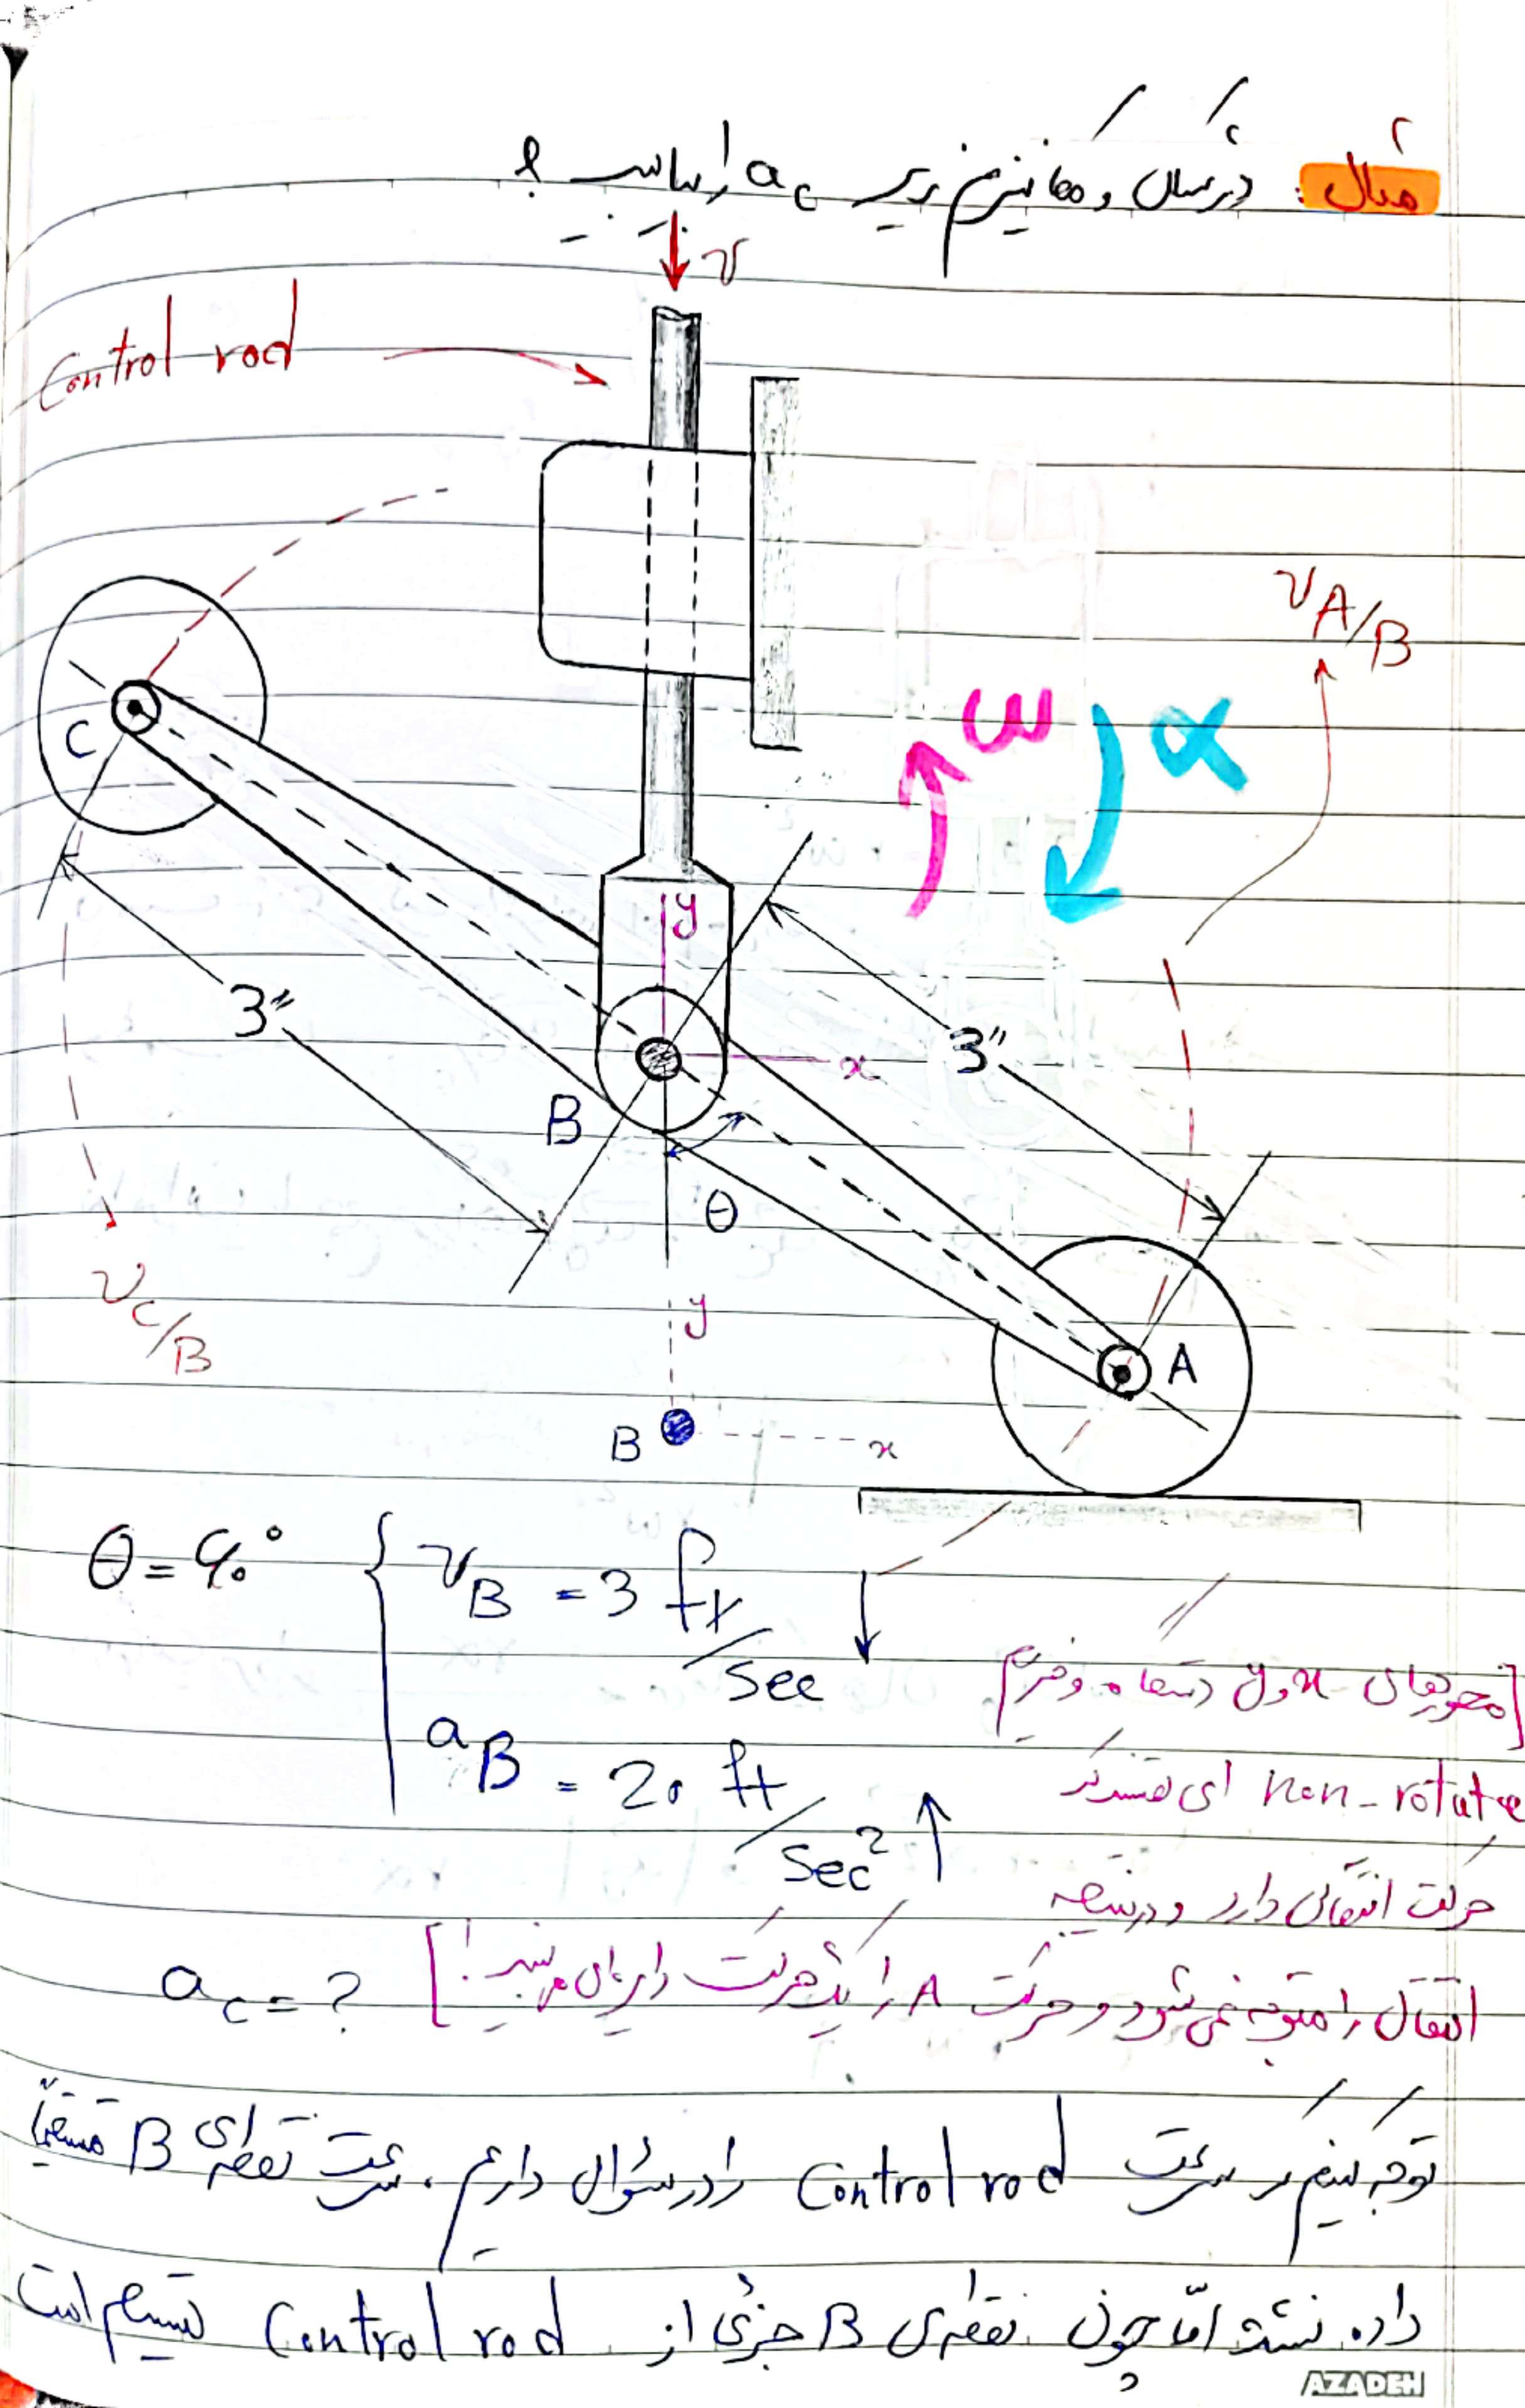 مثال: در شکل و مکانیزم زیر a_c را بیابید؟
v
Control rod
v A/B
ω
α
C
y
3"
3"
x
B
θ
v C/B
y
A
B
x
θ = ۶۰°
v_B = 3 ft/sec ↓
[محورهای x و y دستگاه و فریم
a_B = 20 ft/sec² ↑
non-rotate ای هستند که
حرکت انتقالی دارد و در نتیجه
a_c = ?
انتقال را متوجه نمی شود و حرکت A را یک حرکت دایره‌ای می‌بیند!]
توجه کنیم که سرعت Control rod را در سؤال داریم، سرعت نقطه‌ای B مستقیماً
داده نشده امّا چون نقطه‌ی B جزئی از Control rod مستقیم است
AZADEH